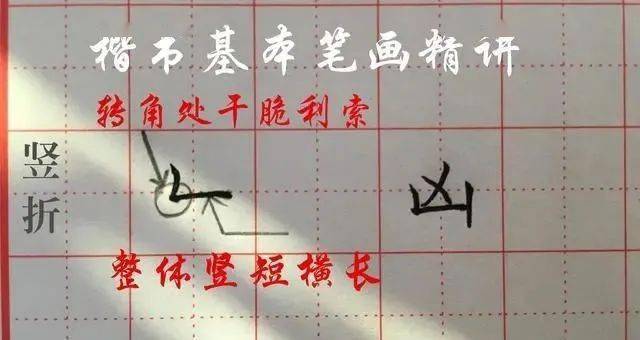 楷书基本笔画精讲
转角处干脆利索
竖折
凶
整体竖短横长